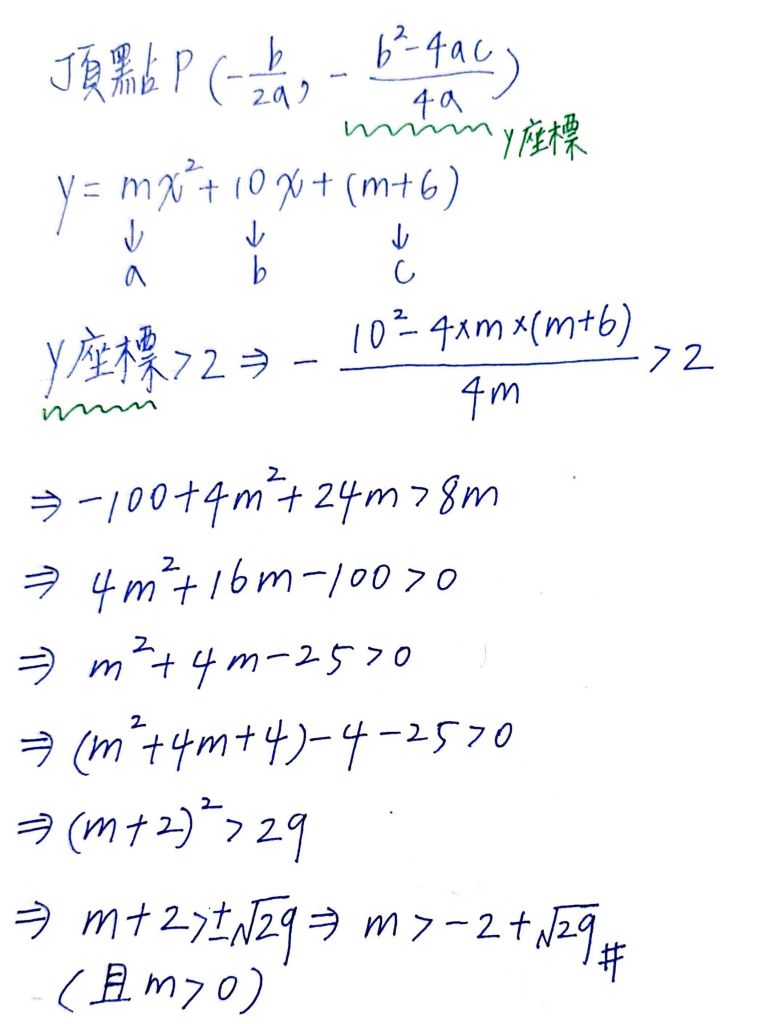 頂點P(-b/2a, -(b²-4ac)/4a)
y座標
y=mx²+10x+(m+6)
↓ ↓ ↓
a b c
y座標>2⇒-(10²-4×m×(m+6))/4m>2
⇒-100+4m²+24m>8m
⇒4m²+16m-100>0
⇒m²+4m-25>0
⇒(m²+4m+4)-4-25>0
⇒(m+2)²>29
⇒m+2>±√29⇒m>-2+√29#
(且m>0)